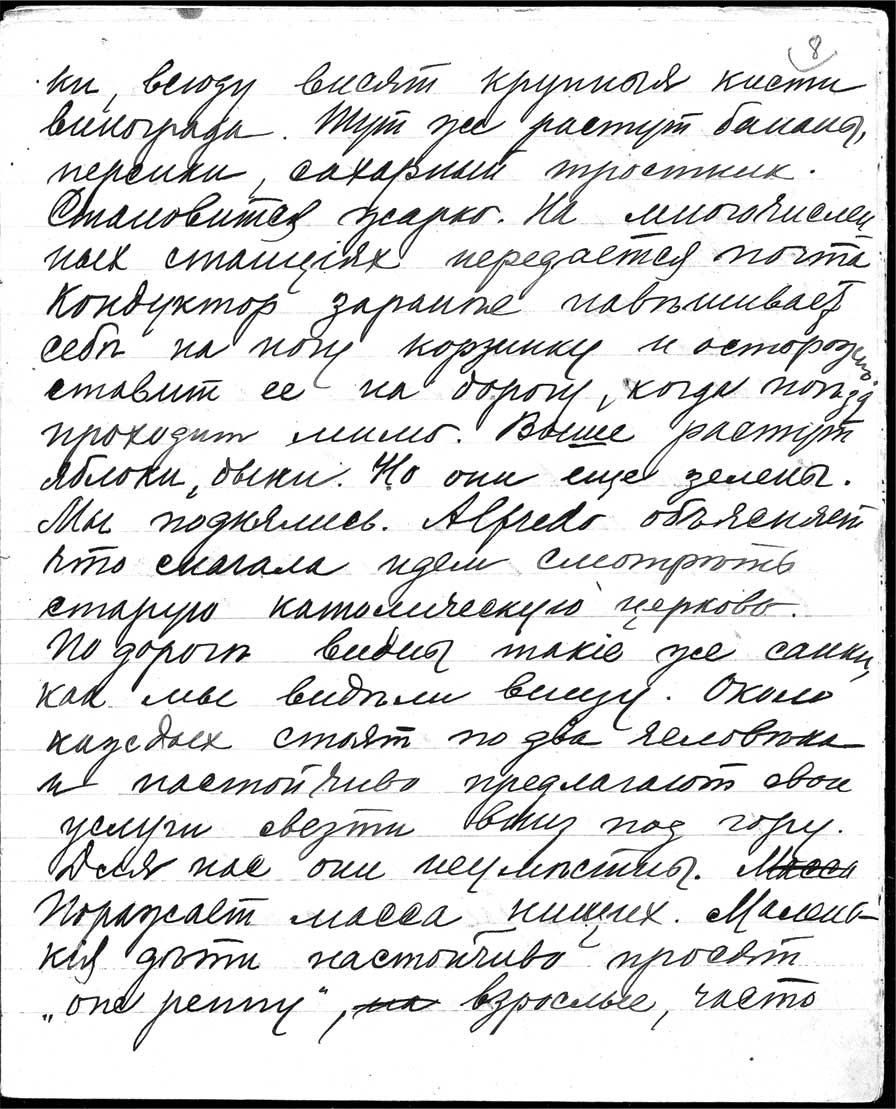 8
ки, всюду висят крупныя кисти
винограда. Тут же растут бананы,
персики, сахарный тростник.
Становится жарко. На многочислен
ных станціях передается почта
Кондуктор заранѣе навѣшивает
себѣ на ногу корзинку и осторожно
ставит ее на дорогу, когда поѣзд
проходит мимо. Выше растут
яблоки, дыни. Но они еще зелены.
Мы поднялись. Alfredo объясняет
что сначала идем смотрѣть
старую католическую церковь.
По дорогѣ видны такіе же санки,
как мы видѣли внизу. Около
каждых стоят по два человѣка
и настойчиво предлагают свои
услуги свезти вниз под гору.
Для нас они неумѣстны. Масса
Поражает масса нищих. Малень-
кія дѣти настойчиво просят
„one penny", на взрослые, часто